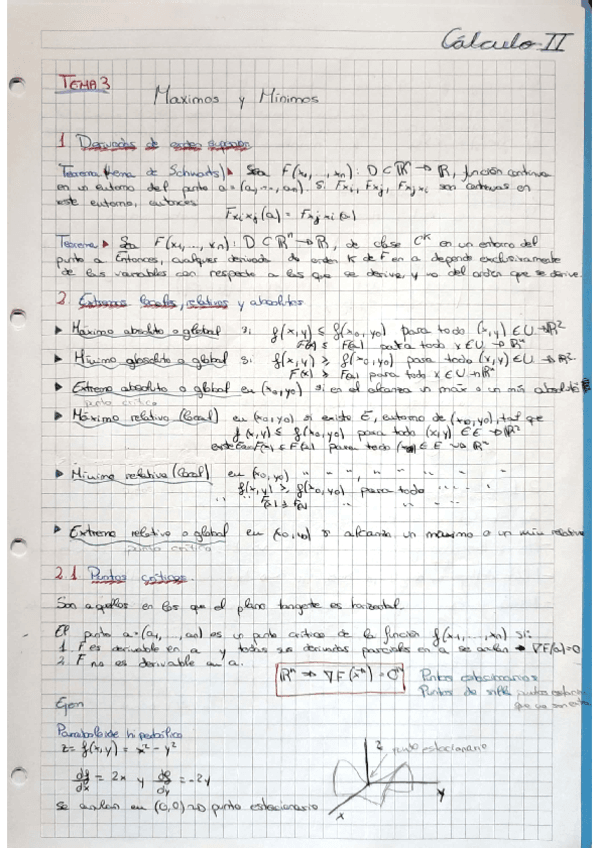 Cálculo-II
TEMA 3
Maximos y Mínimos
1 Derivadas de orden superior
Teorema (lema de Schwards) ▸ Sea F(x₁, ..., xₙ): D ⊂ ℝⁿ → ℝ, función continua
en un entorno del punto a=(a₁, ..., aₙ). Si Fxᵢ, Fxⱼ, Fxⱼxᵢ son continuas en
este entorno, entonces
Fxᵢxⱼ(a) = Fxⱼxᵢ(a)
Teorema ▸ Sea F(x₁, ..., xₙ): D ⊂ ℝⁿ → ℝ, de clase Cᴷ en un entorno del
punto a. Entonces, cualquier derivada de orden K de F en a depende exclusivamente
de las variables con respecto a las que se derive, y no del orden que se derive.
2. Extremos locales, relativos y absolutos
▸ Máximo absoluto o global si f(x,y) ≤ f(x₀,y₀) para todo (x,y) ∈ U → ℝ²
F(x) ≤ F(a) para todo x ∈ U → ℝⁿ
▸ Mínimo absoluto o global si f(x,y) ≥ f(x₀,y₀) para todo (x,y) ∈ U → ℝ²
F(x) ≥ F(a) para todo x ∈ U → ℝⁿ
▸ Extremo absoluto o global en (x₀,y₀) si en el alcanza un max o un mín absoluto
punto crítico
▸ Máximo relativo (local) en (x₀,y₀) si existe E, entorno de (x₀,y₀), tal que
f(x,y) ≤ f(x₀,y₀) para todo (x,y) ∈ E → ℝ²
F(x) ≤ F(a) para todo ∈ E → ℝⁿ
▸ Mínimo relativo (local) en (x₀,y₀) " " " " " " "
f(x,y) ≥ f(x₀,y₀) para todo " " "
F(x) ≥ F(a)
▸ Extremo relativo o global en (x₀,y₀) si alcanza un máximo o un mín relativo
punto crítico
2.1 Puntos críticos:
Son aquellos en los que el plano tangente es horizontal.
El punto a=(a₁, ..., aₙ) es un punto crítico de la función f(x₁, ..., xₙ) si:
1. F es derivable en a y todas sus derivadas parciales en a se anulan → ∇F(a)=0
2. F no es derivable en a.
ℝⁿ → ∇F(xⁿ) = 0ⁿ
Puntos estacionarios
Puntos de silla, puntos estacion.
que no son
Ejem
Paraboloide hiperbólico
z = f(x,y) = x² - y²
df/dx = 2x y df/dy = -2y
se anulan en (0,0) → punto estacionario
z
punto estacionario
y
x